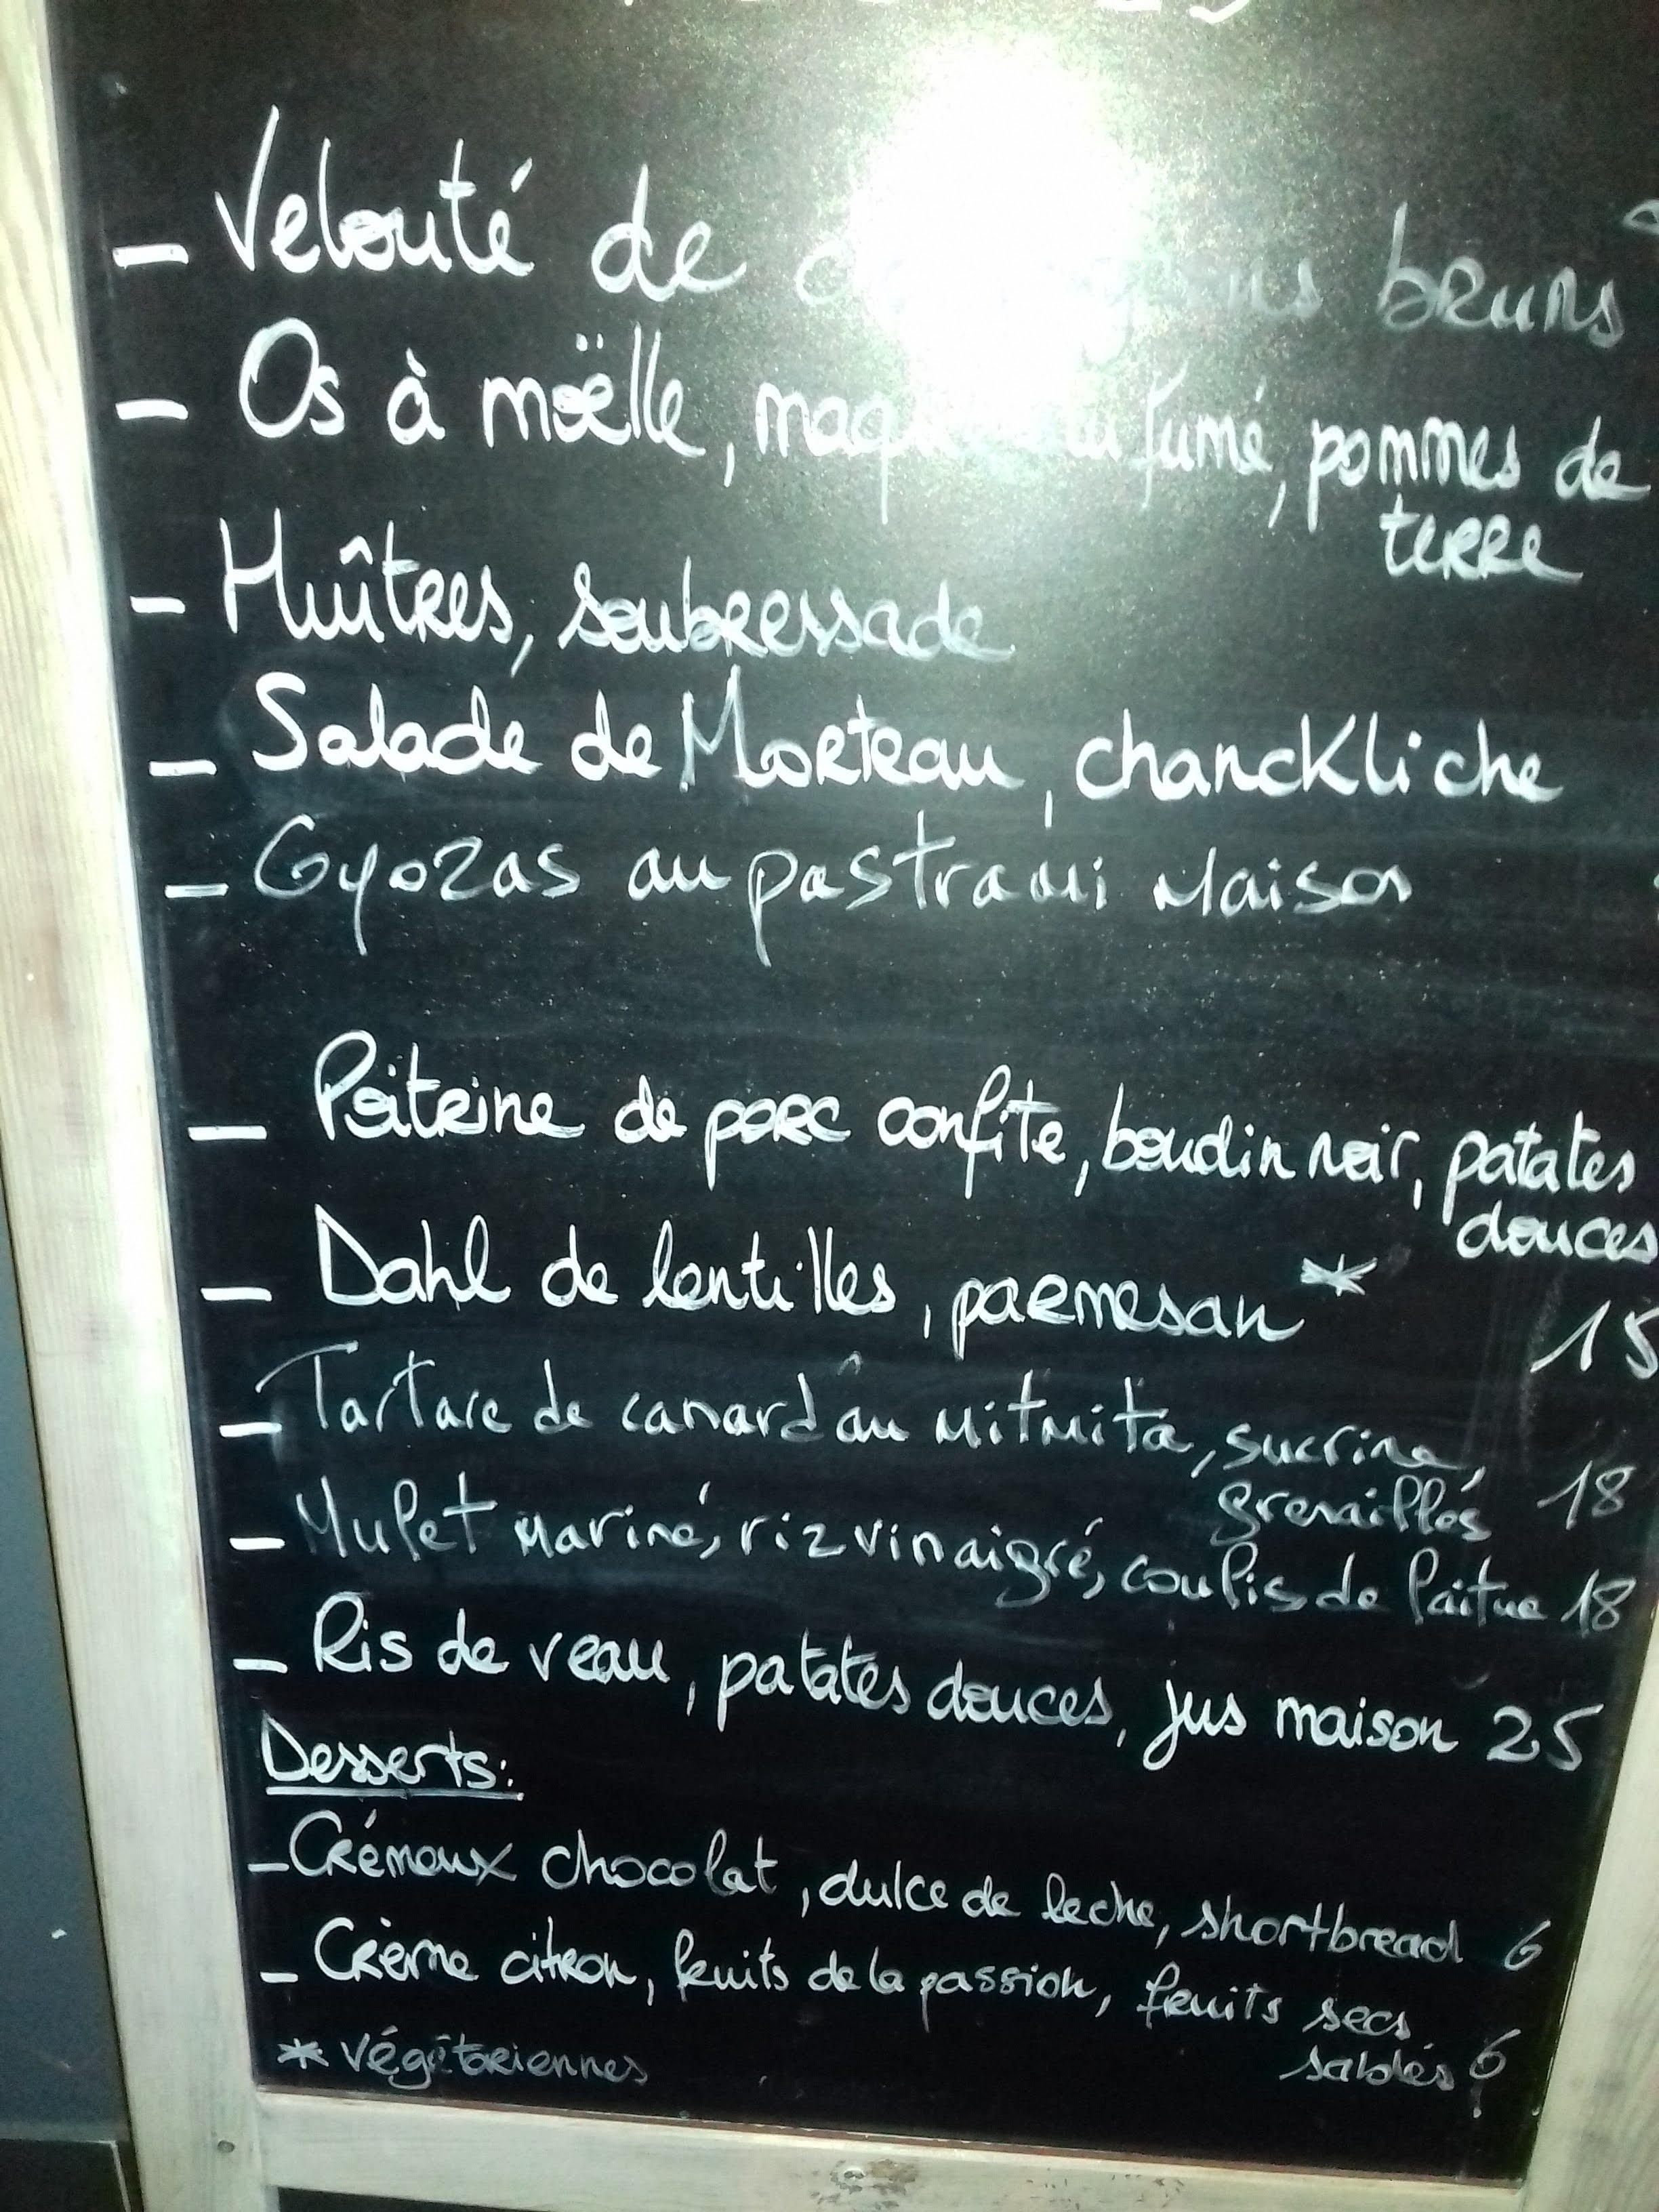 - Velouté de bruns
- Os à moëlle, fumé, pommes de
terre
- Huîtres, soubressade
- Salade de Morteau, chanckliche
- Gyozas au pastrami Maison
- Poitrine de porc confite, boudin noir, patates
douces
- Dahl de lentilles, parmesan *
15
- Tartare de canard au Mitmita, sucrine,
grenailles 18
- Mulet mariné, riz vinaigré, coulis de laitue 18
- Ris de veau, patates douces, jus maison 25
Desserts:
- Crémeux chocolat, dulce de leche, shortbread 6
- Crème citron, fruits de la passion, fruits secs
sablés 6
* végétariennes